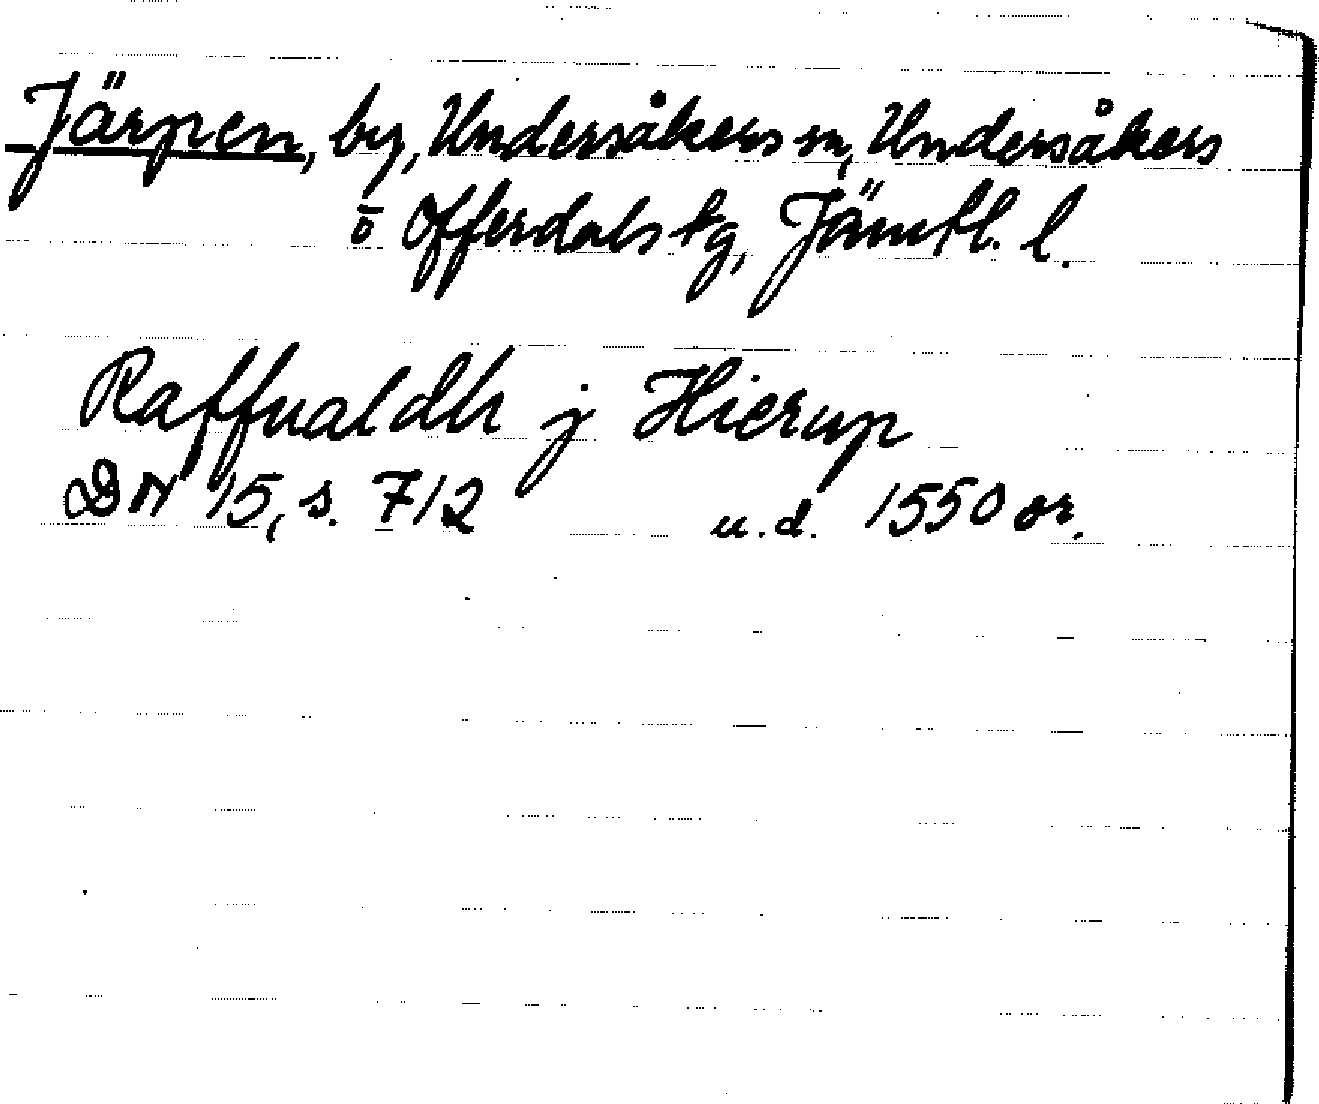 Järpen, by, Undersåkers sn, Undersåkers
o Offerdals tg, Jämtl. l.
Raffualdh j Hierup
DN 15, s. 712 u.d. 1550 or.